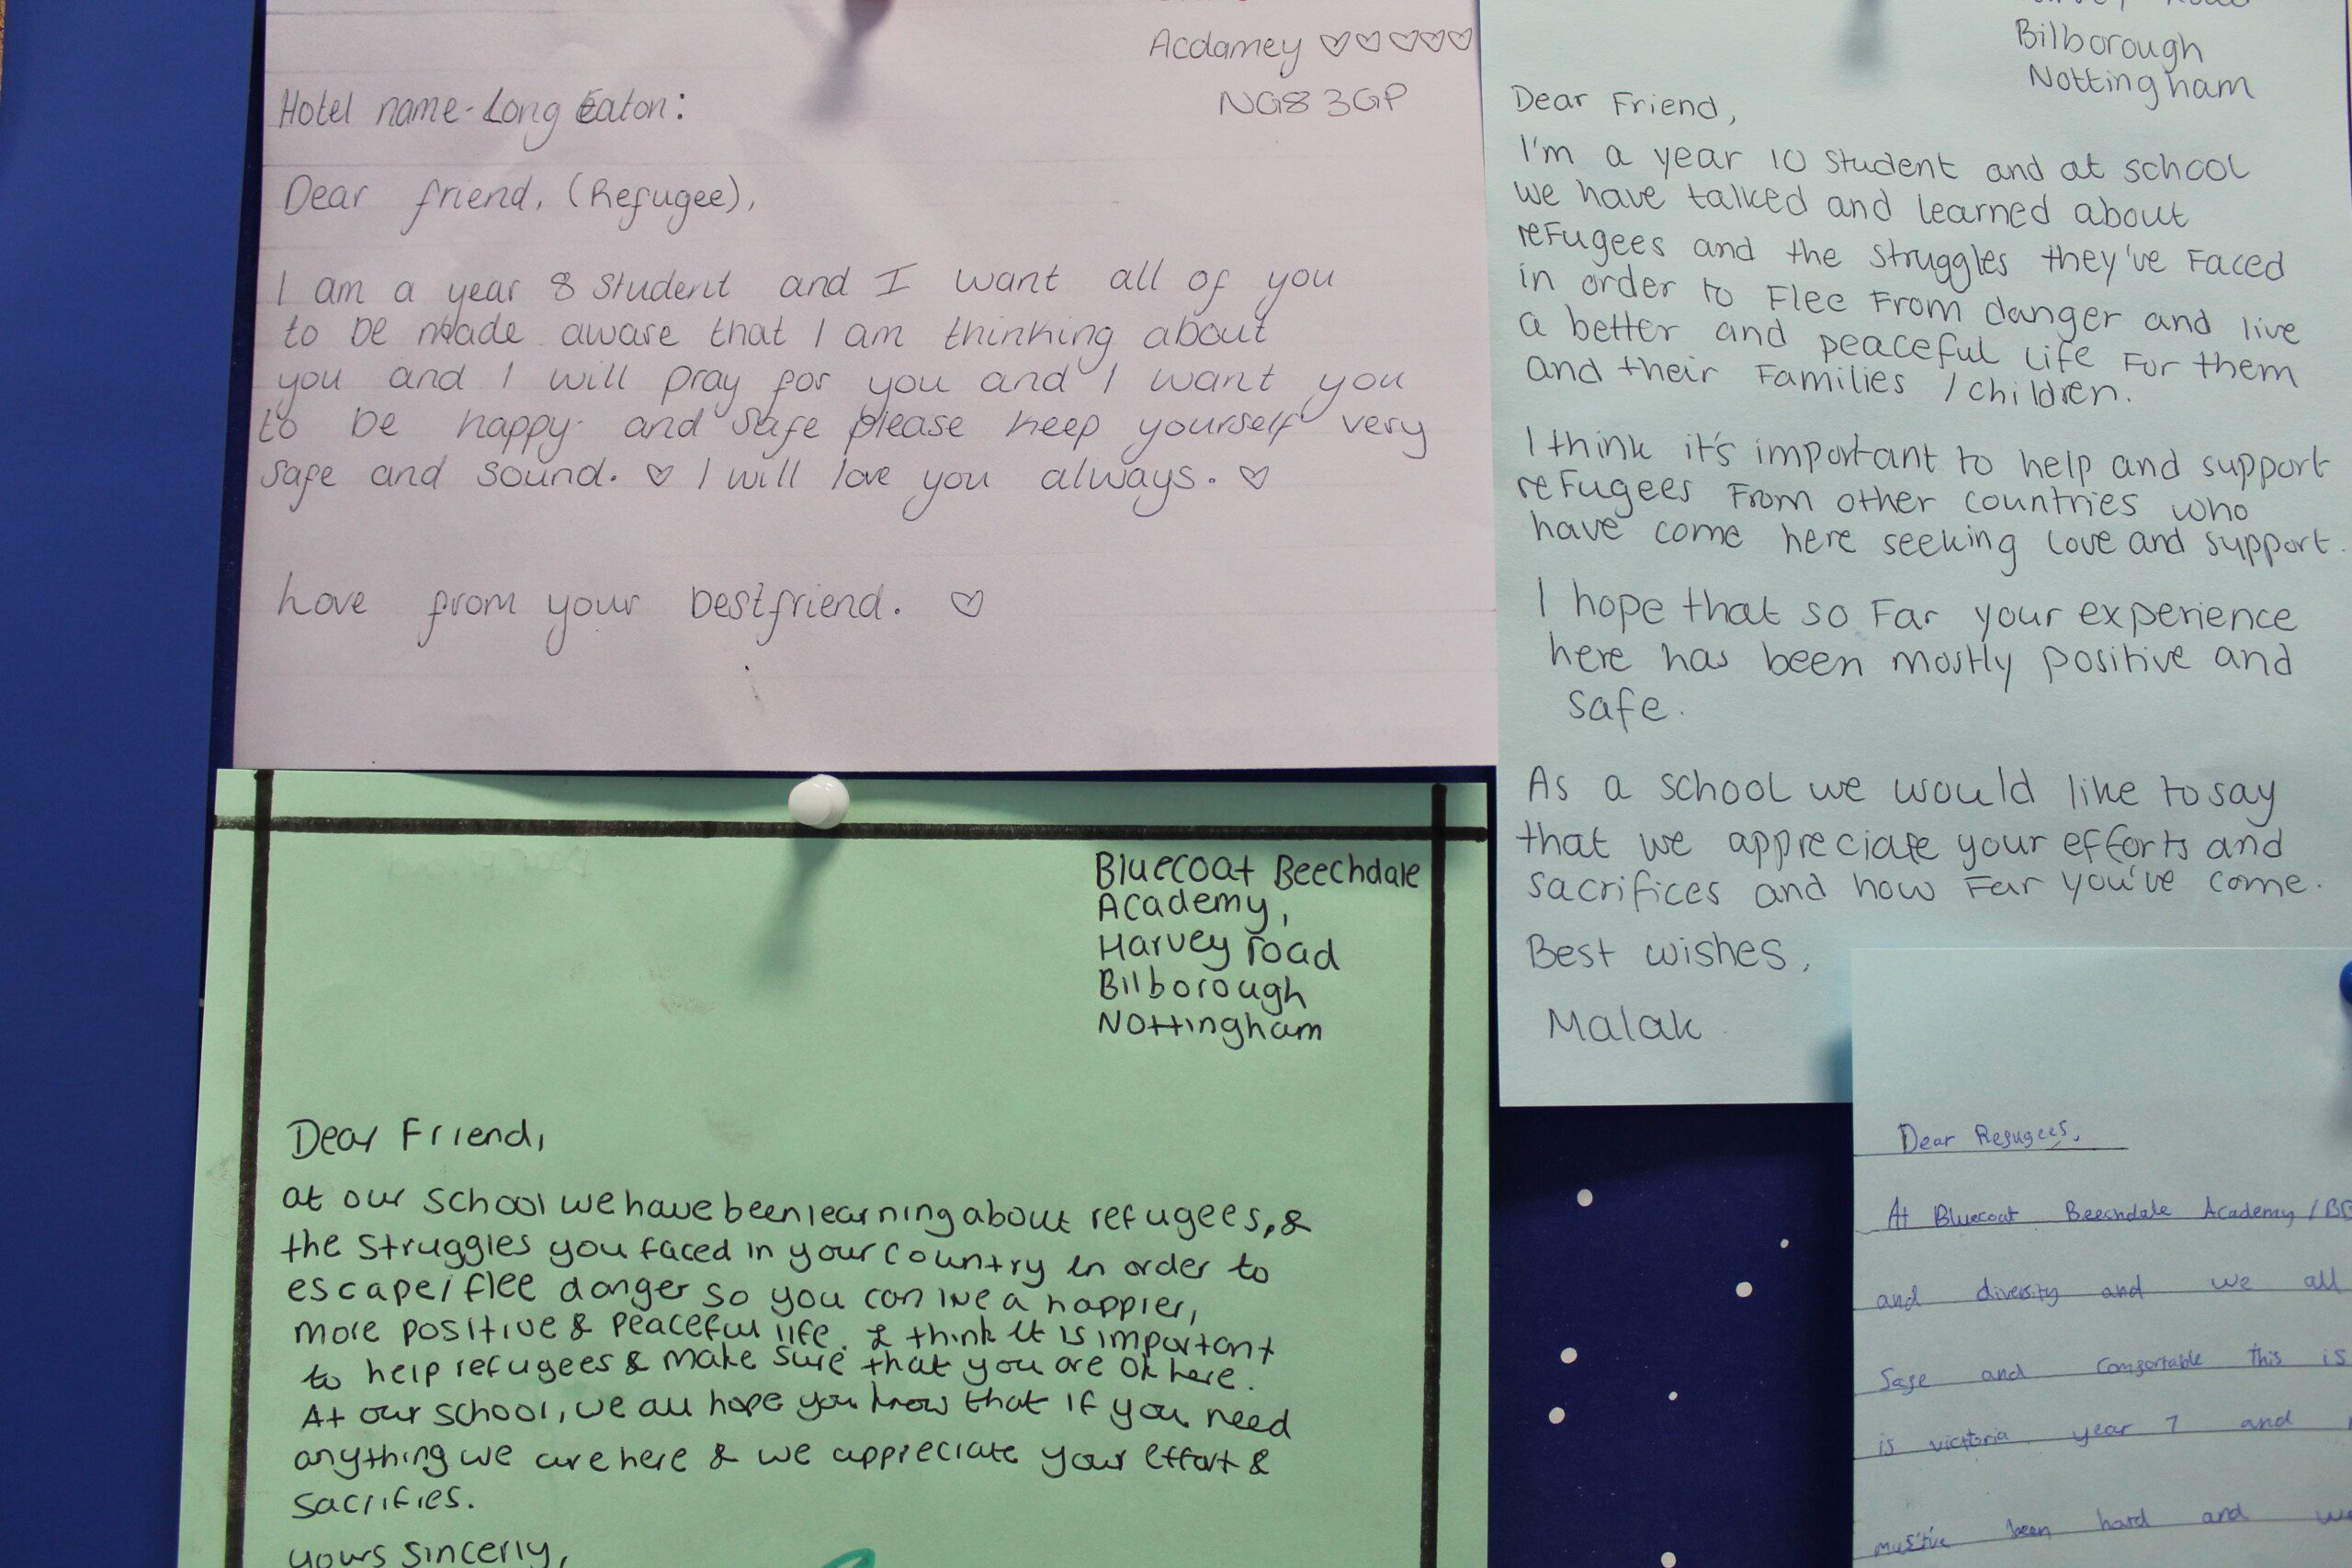 Acdamey ♡♡♡♡♡
NG8 3GP
Hotel name-Long Eaton:
Dear friend, (Refugee),
I am a year 8 student and I want all of you
to be made aware that I am thinking about
you and I will pray for you and I want you
to be happy and safe please keep yourself very
safe and sound. ♡ I will love you always. ♡
Love from your bestfriend. ♡
Bilborough
Nottingham
Dear Friend,
I'm a year 10 student and at school
we have talked and learned about
refugees and the struggles they've faced
in order to flee from danger and live
a better and peaceful life for them
and their families / children.
I think it's important to help and support
refugees from other countries who
have come here seeking love and support.
I hope that so far your experience
here has been mostly positive and
safe.
As a school we would like to say
that we appreciate your efforts and
sacrifices and how far you've come.
Best wishes,
Malak
Bluecoat Beechdale
Academy,
Harvey road
Bilborough
Nottingham
Dear Friend,
at our school we have been learning about refugees, &
the struggles you faced in your country in order to
escape/flee danger so you can live a happier,
more positive & peaceful life. I think it is important
to help refugees & make sure that you are ok here.
At our school, we all hope you know that if you need
anything we are here & we appreciate your effort &
sacrifies.
yours sincerly,
Dear Refugees,
At Bluecoat Beechdale Academy /
and diversity and we all
safe and comfortable this is
is victoria year 7 and
must've been hard and